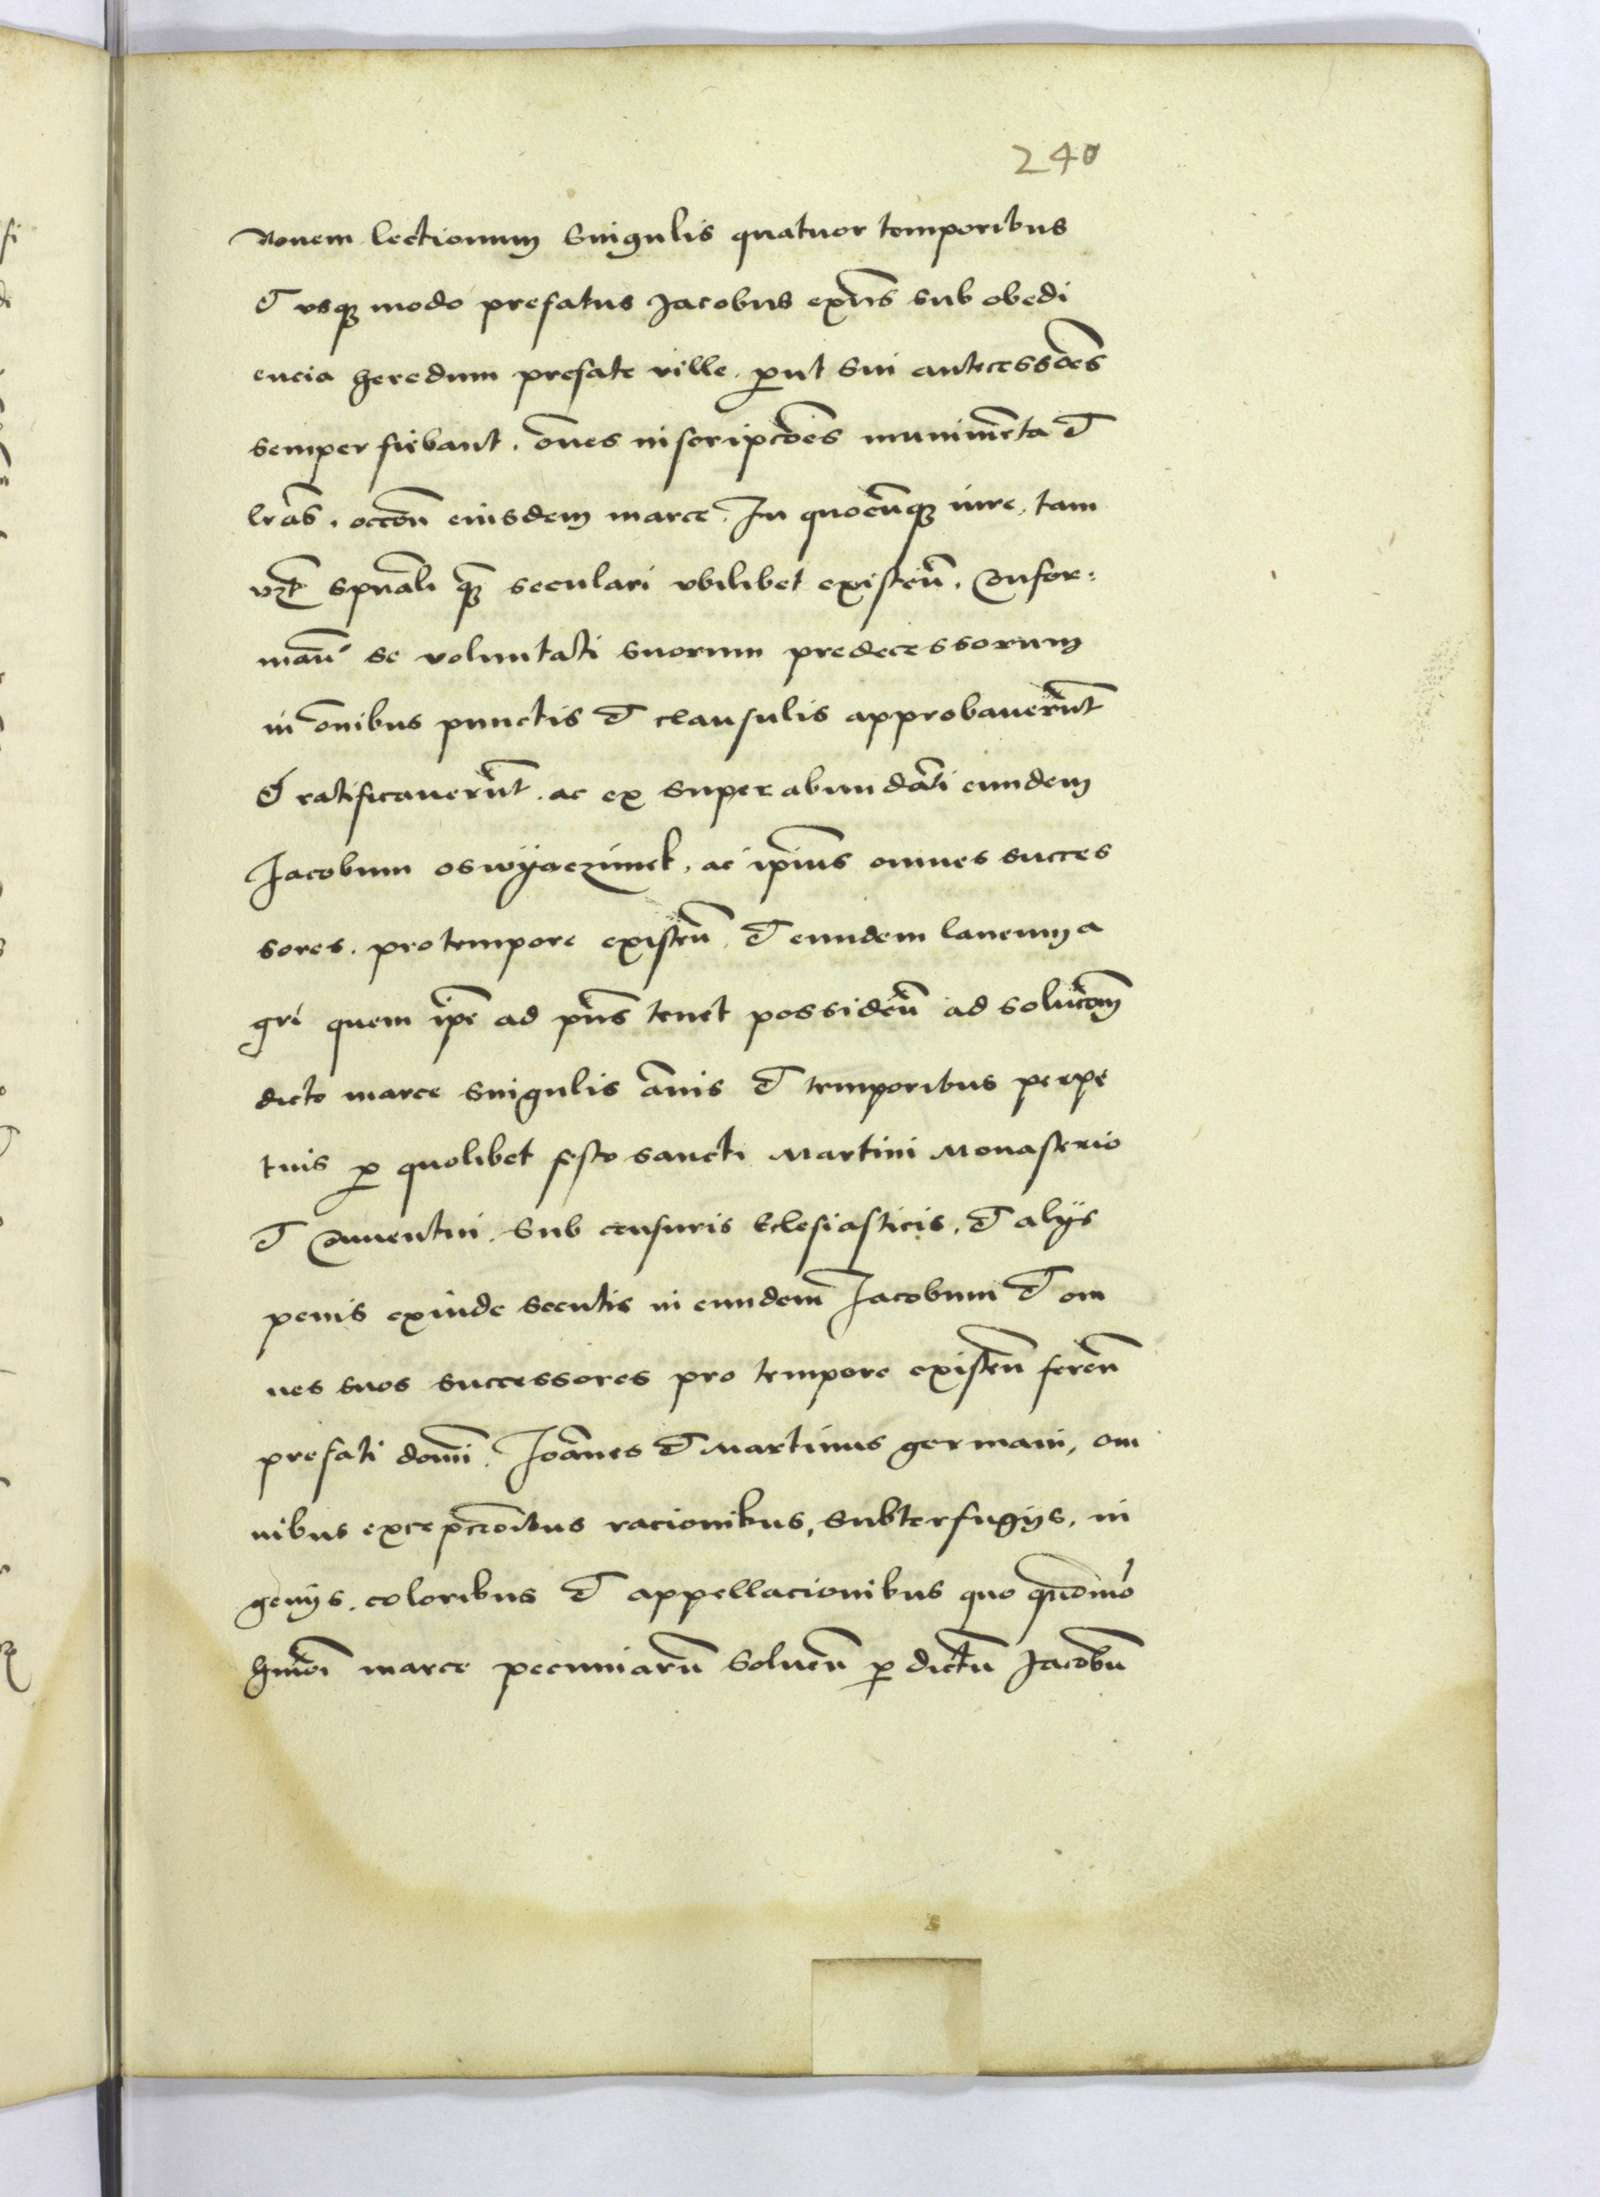 240
Nouem lectionum Singulis quatuor temporibus
et vsq modo prefatus Jacobus exn̄s sub obedi
encia heredum prefate ville . put sui antecessoēs
semper fiebant . ōnes inscripcoēs munimēta et
lrās . occoū eiusdem marce . In quocūq iure, tam
vȝ spūali qȝ seculari vbilibet existeñ . Confor:
mañ se voluntati suorum predecessorum
in ōnibus punctis et clausulis approbauerūt
et ratificauerūt . ac ex superabundāti eundem
Jacobum oswyaczimek . ac ipīus omnes succes
sores . pro tempore existeñ . et eundem laneum a
gri quem ip̄e ad pn̄s tenet possideñ ad solucōm
dicte marce Singulis ānis et temporibus perpe
tuis p quolibet festo sancti Martini Monasterio
et Conuentui . Sub censuris Eclesiasticis . et alÿs
penis exinde secutis in eundem̄ Jacobum et om
nes suos successores pro tempore existeñ fereñ
prefati domī . Joānes et Martinus germani, om
nibus excepcōibus racionibus, Subterfugÿs . in
genÿs . coloribus et appellacionibus quo quomō
hmōi marce pecuniarū Solueñ p dictū Jacobū